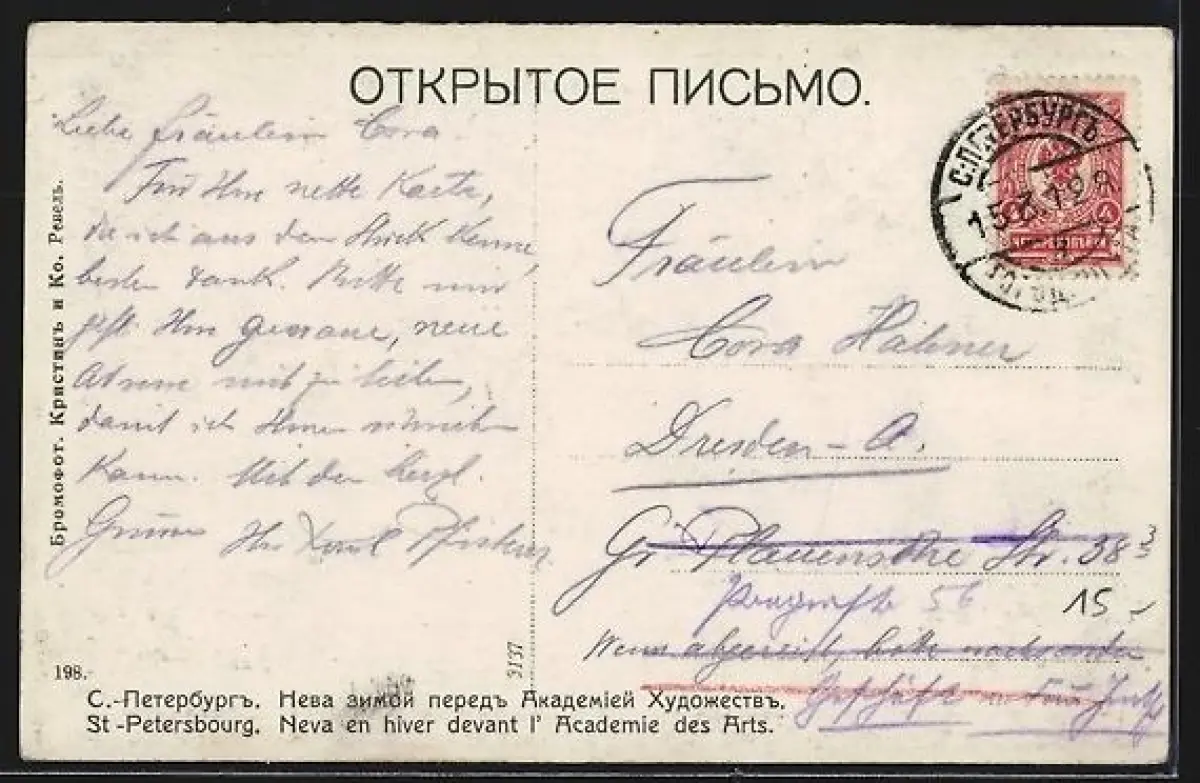 ОТКРЫТОЕ ПИСЬМО.
Liebe Fräulein Cora!
Für Ihre nette Karte,
da ich aus dem Stück kenne,
besten Dank. Bitte mir
gefl. Ihre genaue, neue
Adresse mit zu teilen,
damit ich Ihnen schreiben
kann. Mit den herzl.
Grüssen Ihr Karl
Fräulein
Cora Hähner
Dresden - A.
Gr. Plauensche Str. 38
56
15 -
Wenn abgereist, bitte nachsenden
Geschäft
С.ПЕТЕРБУРГЪ
Бромофот. Кристинъ и Ко. Ревель.
198.
3137
С.-Петербургъ. Нева зимой передъ Академіей Художествъ.
St-Petersbourg. Neva en hiver devant l' Academie des Arts.